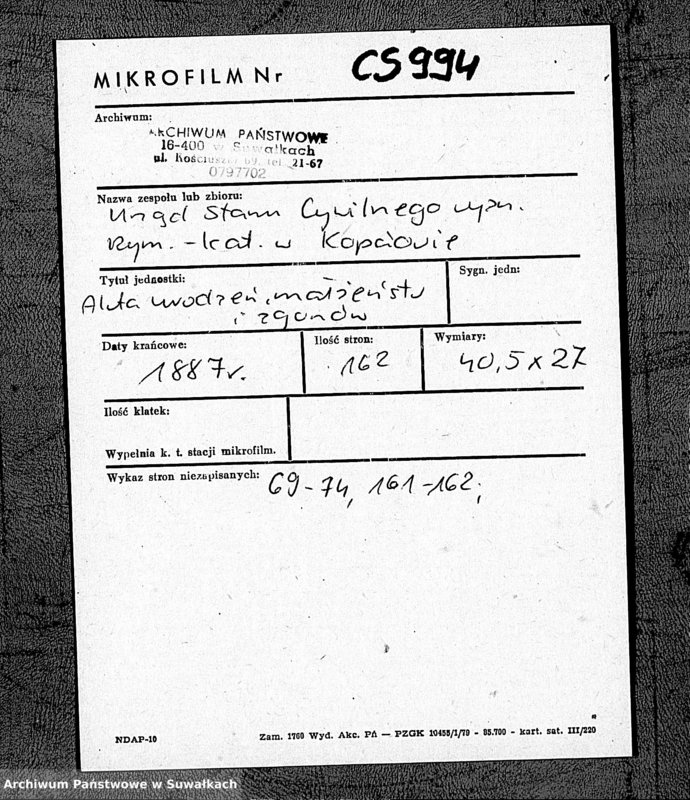 MIKROFILM Nr CS994
Archiwum:
ARCHIWUM PAŃSTWOWE
16-400 w Suwałkach
ul. Kościuszki 69, tel. 21-67
0797702
Nazwa zespołu lub zbioru:
Urząd Stanu Cywilnego wyzn.
rzym. - kat. w Kopciowie
Tytuł jednostki:
Sygn. jedn:
Akta urodzeń, małżeństw
i zgonów
Daty krańcowe:
1887r.
Ilość stron:
162
Wymiary:
40,5 x 27
Ilość klatek:
Wypełnia k. t. stacji mikrofilm.
Wykaz stron niezapisanych: 69-74, 161-162;
NDAP-10
Zam. 1760 Wyd. Akc. PA — PZGK 10455/1/79 - 85.700 - kart. sat. III/220
Archiwum Państwowe w Suwałkach